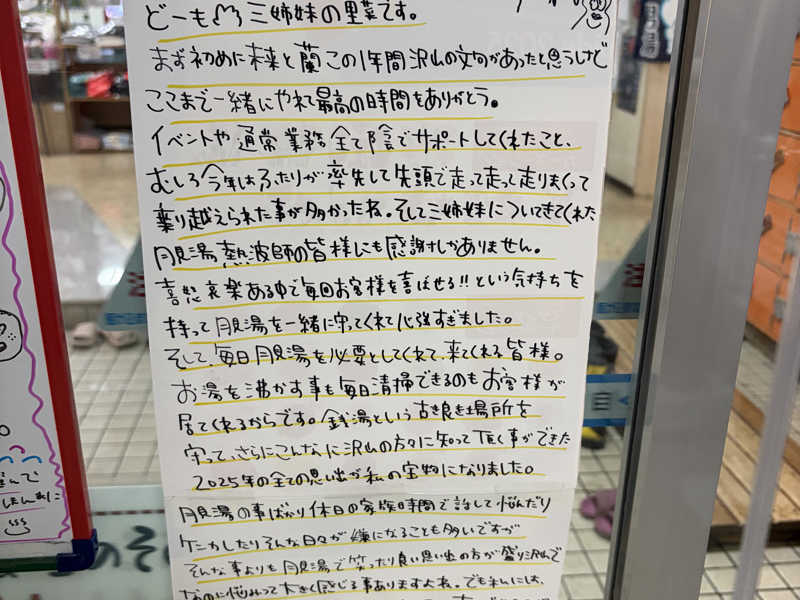 どーも 三姉妹の里菜です。
まず初めに未来と蘭この1年間沢山の文句があったと思うけど
ここまで一緒にやれて最高の時間をありがとう。
イベントや通常業務全て陰でサポートしてくれたこと、
むしろ今年はふたりが率先して先頭で走って走って走りまくって
乗り越えられた事が多かったね。そして三姉妹についてきてくれた
月見湯熱波師の皆様にも感謝しかありません。
喜怒哀楽ある中で毎回お客様を喜ばせる!!という気持ちを
持って月見湯を一緒に守ってくれて心強すぎました。
そして、毎日月見湯を必要としてくれて、来てくれる皆様。
お湯を沸かす事も毎日清掃できるのもお客様が
居てくれるからです。銭湯という古き良き場所を
守って、さらにこんなに沢山の方々に知って頂く事ができた
2025年の全ての思い出が私の宝物になりました。
月見湯の事ばかり休日の家族時間で話して悩んだり
ケンカしたりそんな日々が嫌になることも多いですが
そんな事よりも月見湯で笑ったり良い思い出の方が盛り沢山で
なのに悩みって大きく感じる事ありますよね。でも私には、